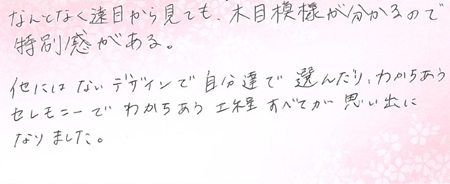 なんとなく遠目から見ても、木目模様が分かるので
特別感がある。
他にはないデザインで自分達で選んだり、わかちあう
セレモニーでわかちあう工程すべてが思い出に
なりました。